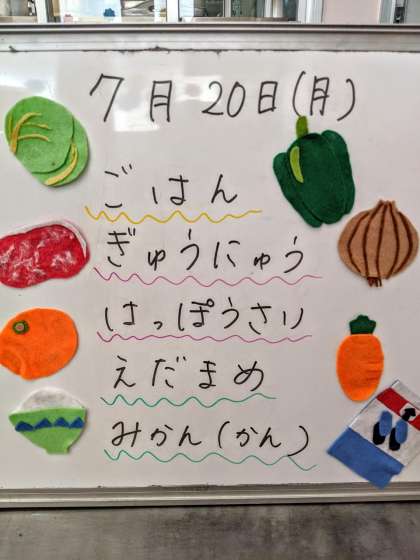 7月20日(月)
ごはん
ぎゅうにゅう
はっぽうさい
えだまめ
みかん(かん)